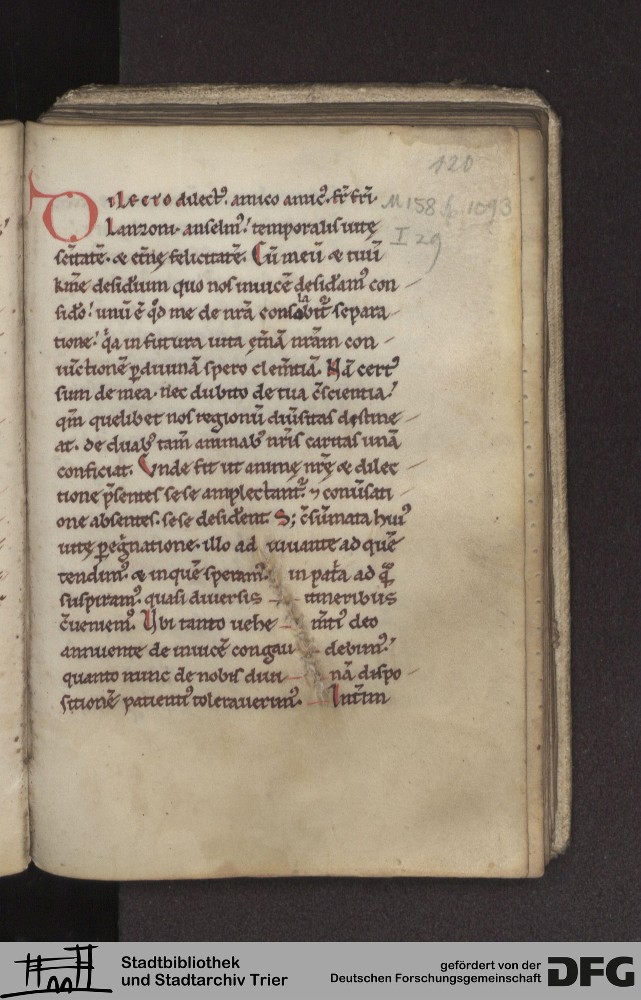 120
DILECTO dilect᷒. amico amic᷒. fr̄ fr̄i
M 158 Sp. 1093
Lanzoni. anselm᷒! temporalis uitę
I 29
sc̄itatē. & et̄nę felicitatē. Cū meū & tuū
kīme desid̄ium quo nos inuicē desid̄am᷒ con
fido! unū ē qd̄ me de nr̄a consolabit᷑ separa
tione! q̄a in futura uita et̄nā nr̄am con
iūctionē ꝑ diuinā spero clem̄tiā. Nā cert᷒
sum de mea. nec dubito de tua c̄scientia!
qm̄ quelibet nos regionū diu̾sitas destine
at. de duab᷒ tam̄ animab᷒ nr̄is caritas unā
conficiat. Vnde fit ut animę nr̄ę & dilec
tione p̄sentes sese amplectant᷑. ⁊ conu̾sati
one absentes. sese desid̄ent. S; c̄sūmata hui᷒
uitę ꝑeḡnatione. illo adiuuante ad quē
tendim᷒. & in quē speram᷒. in pat̄a ad q̄
suspiram᷒. quasi diuersis itineribus
c̄ueniem᷒. Vbi tanto uehem̄ti᷒ deo
annuente de inuicē congaudebim᷒!
quanto nunc de nobis diuinā dispo
sitionē patienti᷒ tolerauerim᷒. Int̄im
Stadtbibliothek
und Stadtarchiv Trier
gefördert von der
Deutschen Forschungsgemeinschaft
DFG